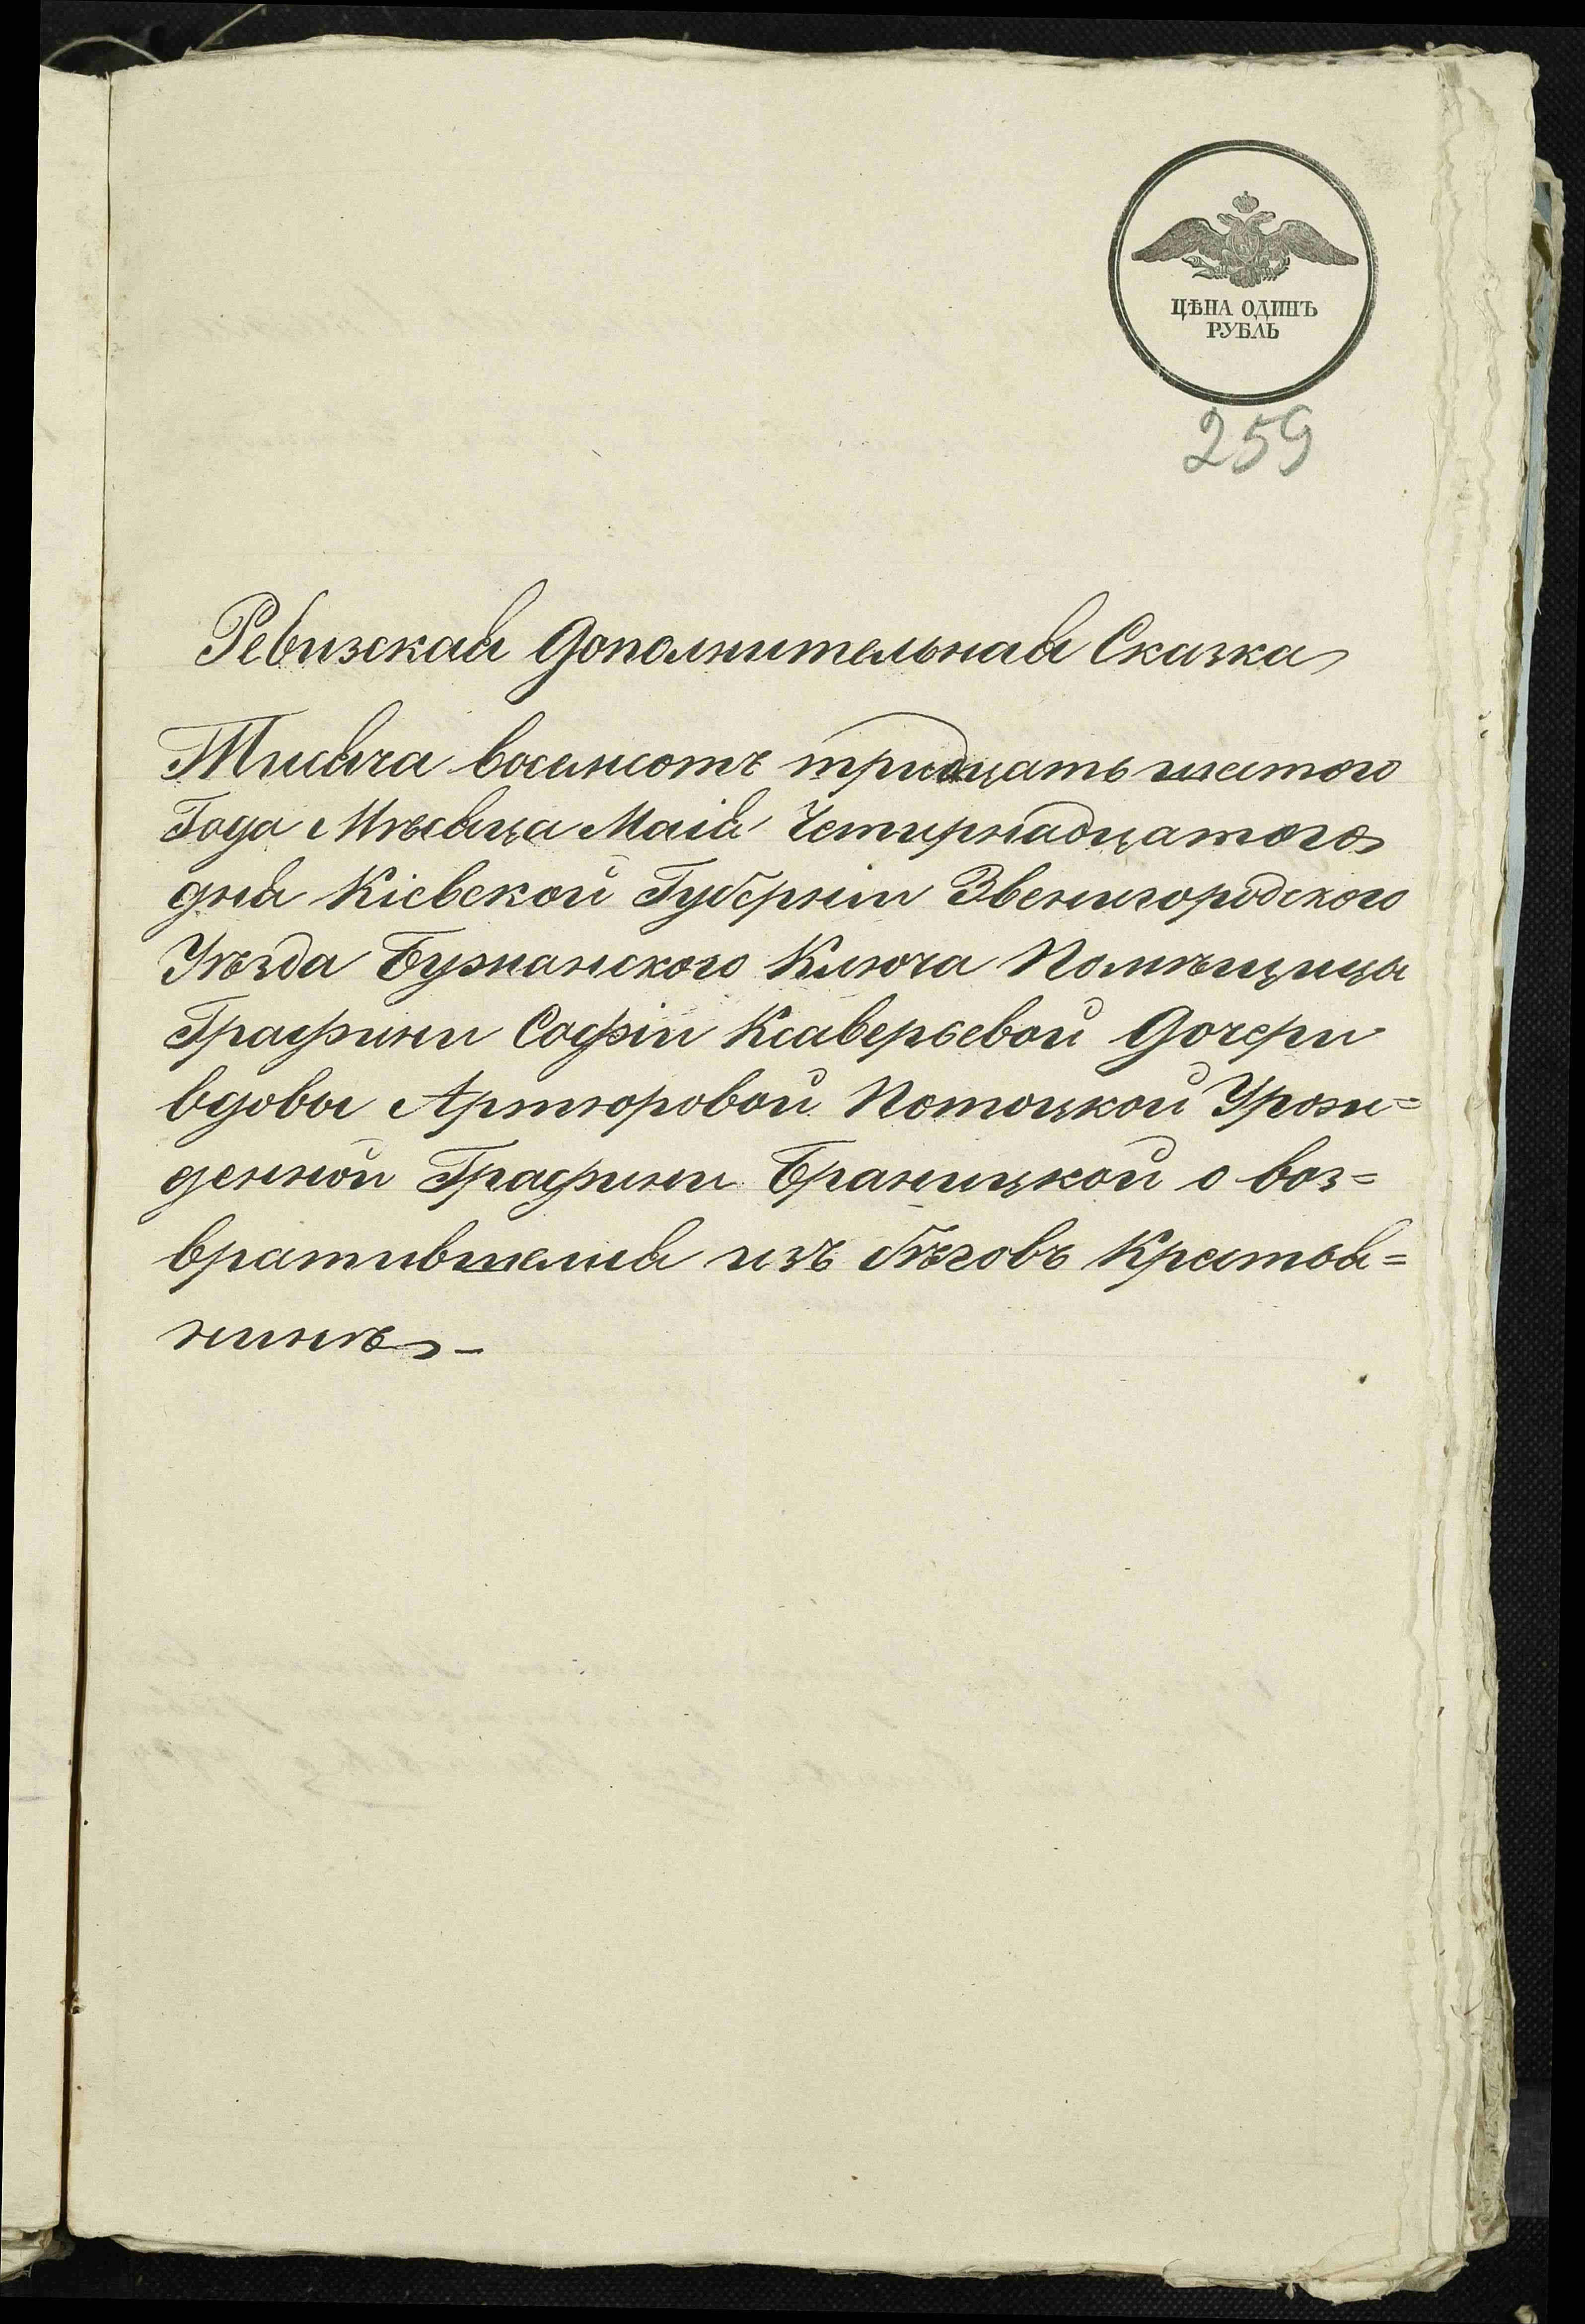 ЦѢНА ОДИНЪ
РУБЛЬ
259
Ревизская Дополнительная Сказка
Тисяча восемсотъ тридцать шестого
Года Мѣсяца Маія Четирнадцатого
дня Кіевской Губерніи Звенигородского
Уѣзда Бужанского Ключа Помѣщицы
Графини Софіи Ксаверьевой Дочери
вдовы Артюровой Потоцкой Урож=
денной Графини Браницкой о воз=
вратившемся изъ бѣговъ Крестья=
нинѣ –